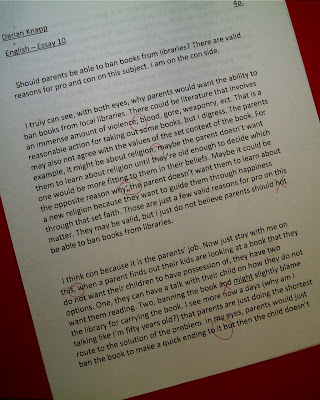 Darian Knapp
4p.
English – Essay 10
Should parents be able to ban books from libraries? There are valid
reasons for pro and con on this subject. I am on the con side.
I truly can see, with both eyes, why parents would want the ability to
ban books from local libraries. There could be literature that involves
an immense amount of violence, blood, gore, weaponry, ect. That is a
reasonable action for taking out some books, but I digress. The parents
may also not agree with the values of the set context of the book. For
example, it might be about religion, maybe the parent doesn't want
them to learn about religion until they're old enough to decide which
one would be more fitting to them in their beliefs. Maybe it could be
the opposite reason why, the parent doesn't want them to learn about
a new religion because they want to guide them through happiness
through that set faith. Those are just a few valid reasons for pro on this
matter. They may be valid, but I just do not believe parents should
be able to ban books from libraries.
I think con because it is the parents' job. Now just stay with me on
this, when a parent finds out their kids are looking at a book that they
do not want their children to have possession of, they have two
options. One, they can have a talk with their child on how they do not
want them reading. Two, banning the book and might slightly blame
the library for carrying the book. I see more now a days (why am I
talking like I'm fifty years old?) that parents are just doing the shortest
route to the solution of the problem. In my eyes, parents would just
ban the book to make a quick ending to it but then the child doesn't